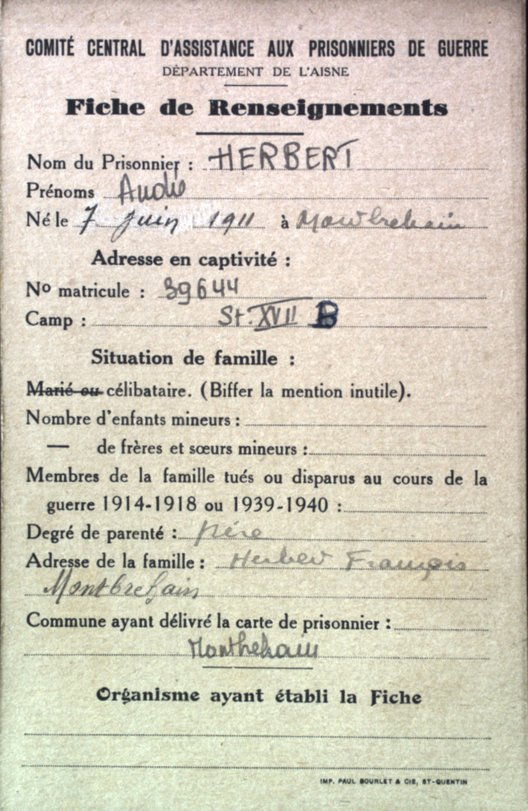 COMITÉ CENTRAL D'ASSISTANCE AUX PRISONNIERS DE GUERRE
DÉPARTEMENT DE L'AISNE
Fiche de Renseignements
Nom du Prisonnier : HERBERT
Prénoms André
Né le 7 juin 1911 à Montbrehain
Adresse en captivité :
No matricule : 39644
Camp : St. XVII B
Situation de famille :
Marié ou célibataire. (Biffer la mention inutile).
Nombre d'enfants mineurs :
— de frères et sœurs mineurs :
Membres de la famille tués ou disparus au cours de la
guerre 1914-1918 ou 1939-1940 :
Degré de parenté : père
Adresse de la famille : Herbert François
Montbrehain
Commune ayant délivré la carte de prisonnier :
Montbrehain
Organisme ayant établi la Fiche
IMP. PAUL BOURLET & CIE, ST-QUENTIN